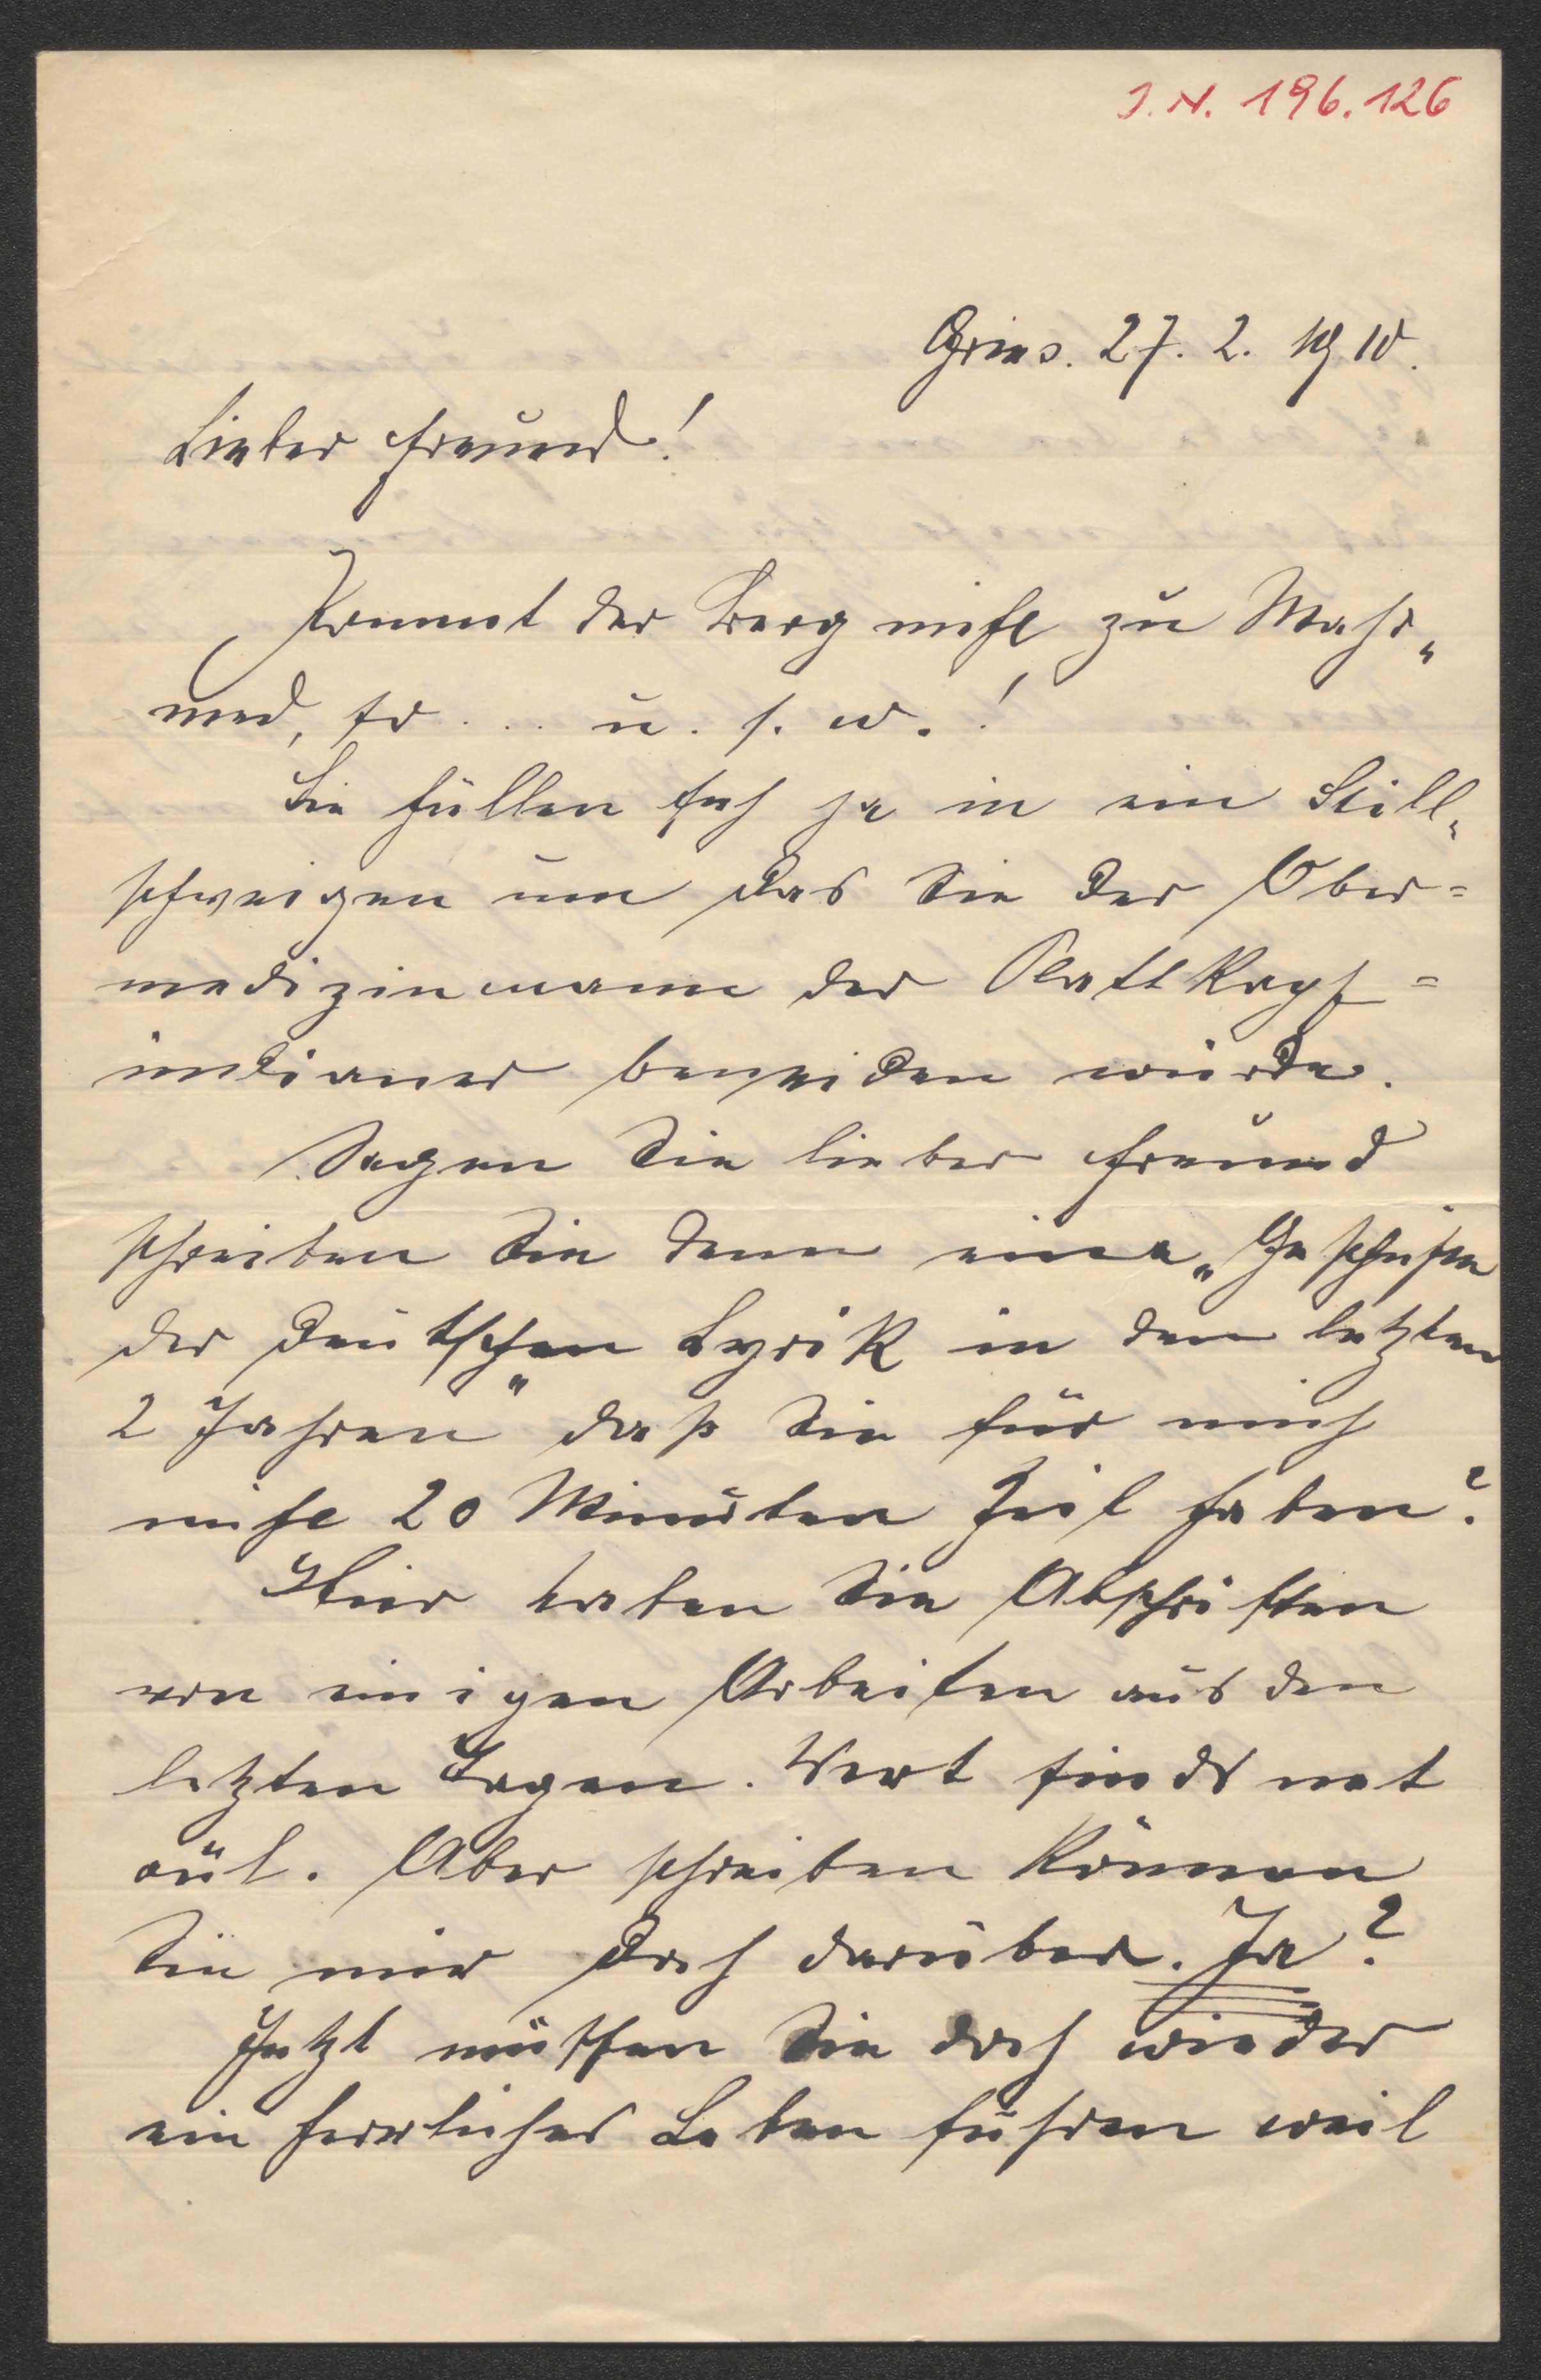 J. N. 196.126
Gries. 27. 2. 1910.
Lieber Freund!
Kommt der Berg nicht zu Moha„
med, so . . . u. s. w. !
Sie hüllen sich ja in ein Still„
schweigen um das Sie der Ober=
medizinmann der Plattkopf=
indianer beneiden würde.
Sagen Sie lieber Freund
schreiben Sie denn eine „Geschichte
der deutschen Lyrik in den letzten
2 Jahren" daß Sie für mich
nicht 20 Minuten Zeit haben?
Hier haben Sie Abschriften
von einigen Arbeiten aus den
letzten Tagen. Wert sinds net
viel. Aber schreiben können
Sie mir doch darüber. Ja?
Jetzt müssen Sie doch wieder
ein herrliches Leben führen weil